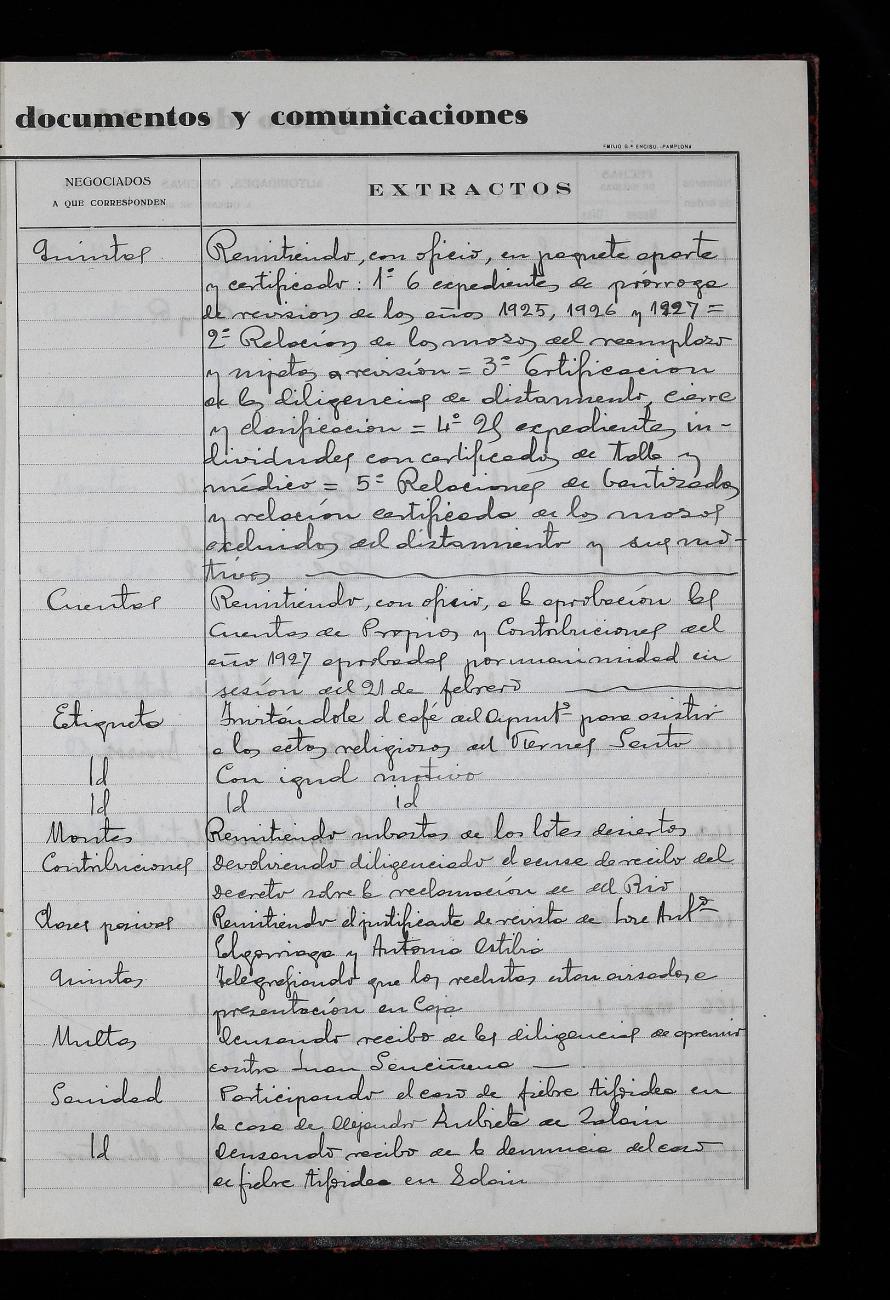 documentos y comunicaciones
EMILIO G.ª ENCISO.-PAMPLONA
NEGOCIADOS
A QUE CORRESPONDEN
EXTRACTOS
Quintas Remitiendo, con oficio, en paquete aparte
y certificado: 1º 6 expedientes de prórroga
de revision de los años 1925, 1926 y 1927 =
2º Relación de los mozos del reemplazo
y sujetos a revisión = 3º Certificacion
de las diligencias de alistamiento, cierre
y clasificación = 4º 25 expedientes in-
dividuales con certificados de talla y
médico = 5º Relaciones de bautizados
y relación certificada de los mozos
excluidos del alistamiento y sus mo-
tivos
Cuentas Remitiendo, con oficio, a la aprobación las
Cuentas de Propios y Contribuciones del
año 1927 aprobadas por unanimidad en
sesión del 21 de febrero
Etiqueta Invitándole al café del Ayuntº para asistir
a los actos religiosos del Viernes Santo
Id Con igual motivo
Id Id id
Montes Remitiendo subastas de los lotes desiertos
Contribuciones Devolviendo diligenciado el acuse de recibo del
Decreto sobre la reclamación de del Rio
Clases pasivas Remitiendo el justificante de revista de Jose Antº
Elgorriaga y Antonia Astibia
Quintas Telegrafiando que los reclutas estan avisados a
presentación en Caja
Multas Acusando recibo de las diligencias de apremio
contra Juan Senciñena
Sanidad Participando el caso de fiebre tifoidea en
la casa de Alejandro Zubieta de Zalain
Id Acusando recibo de la denuncia del caso
de fiebre tifoidea en Zalain